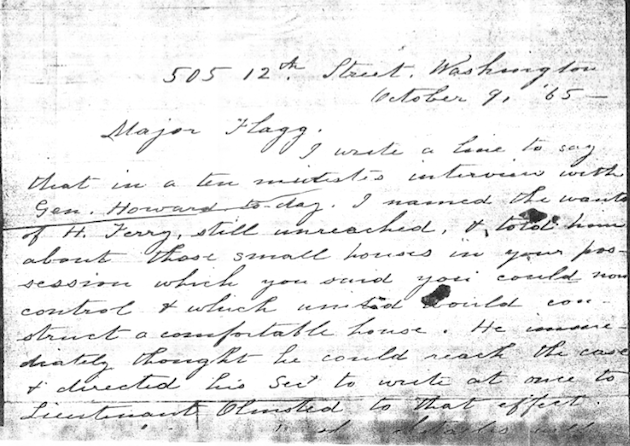 505 12th. Street. Washington
October 9, '65—
Major Flagg.
I write a line to say
that in a ten minute's interview with
Gen. Howard to-day. I named the wants
of H. Ferry, still unreached, & told him
about those small houses in your pos-
session which you said you could now
control & which united would con-
struct a comfortable house. He imme-
diately thought he could reach the case
& directed his Sec't to write at once to
Lieutenant Olmsted to that effect.